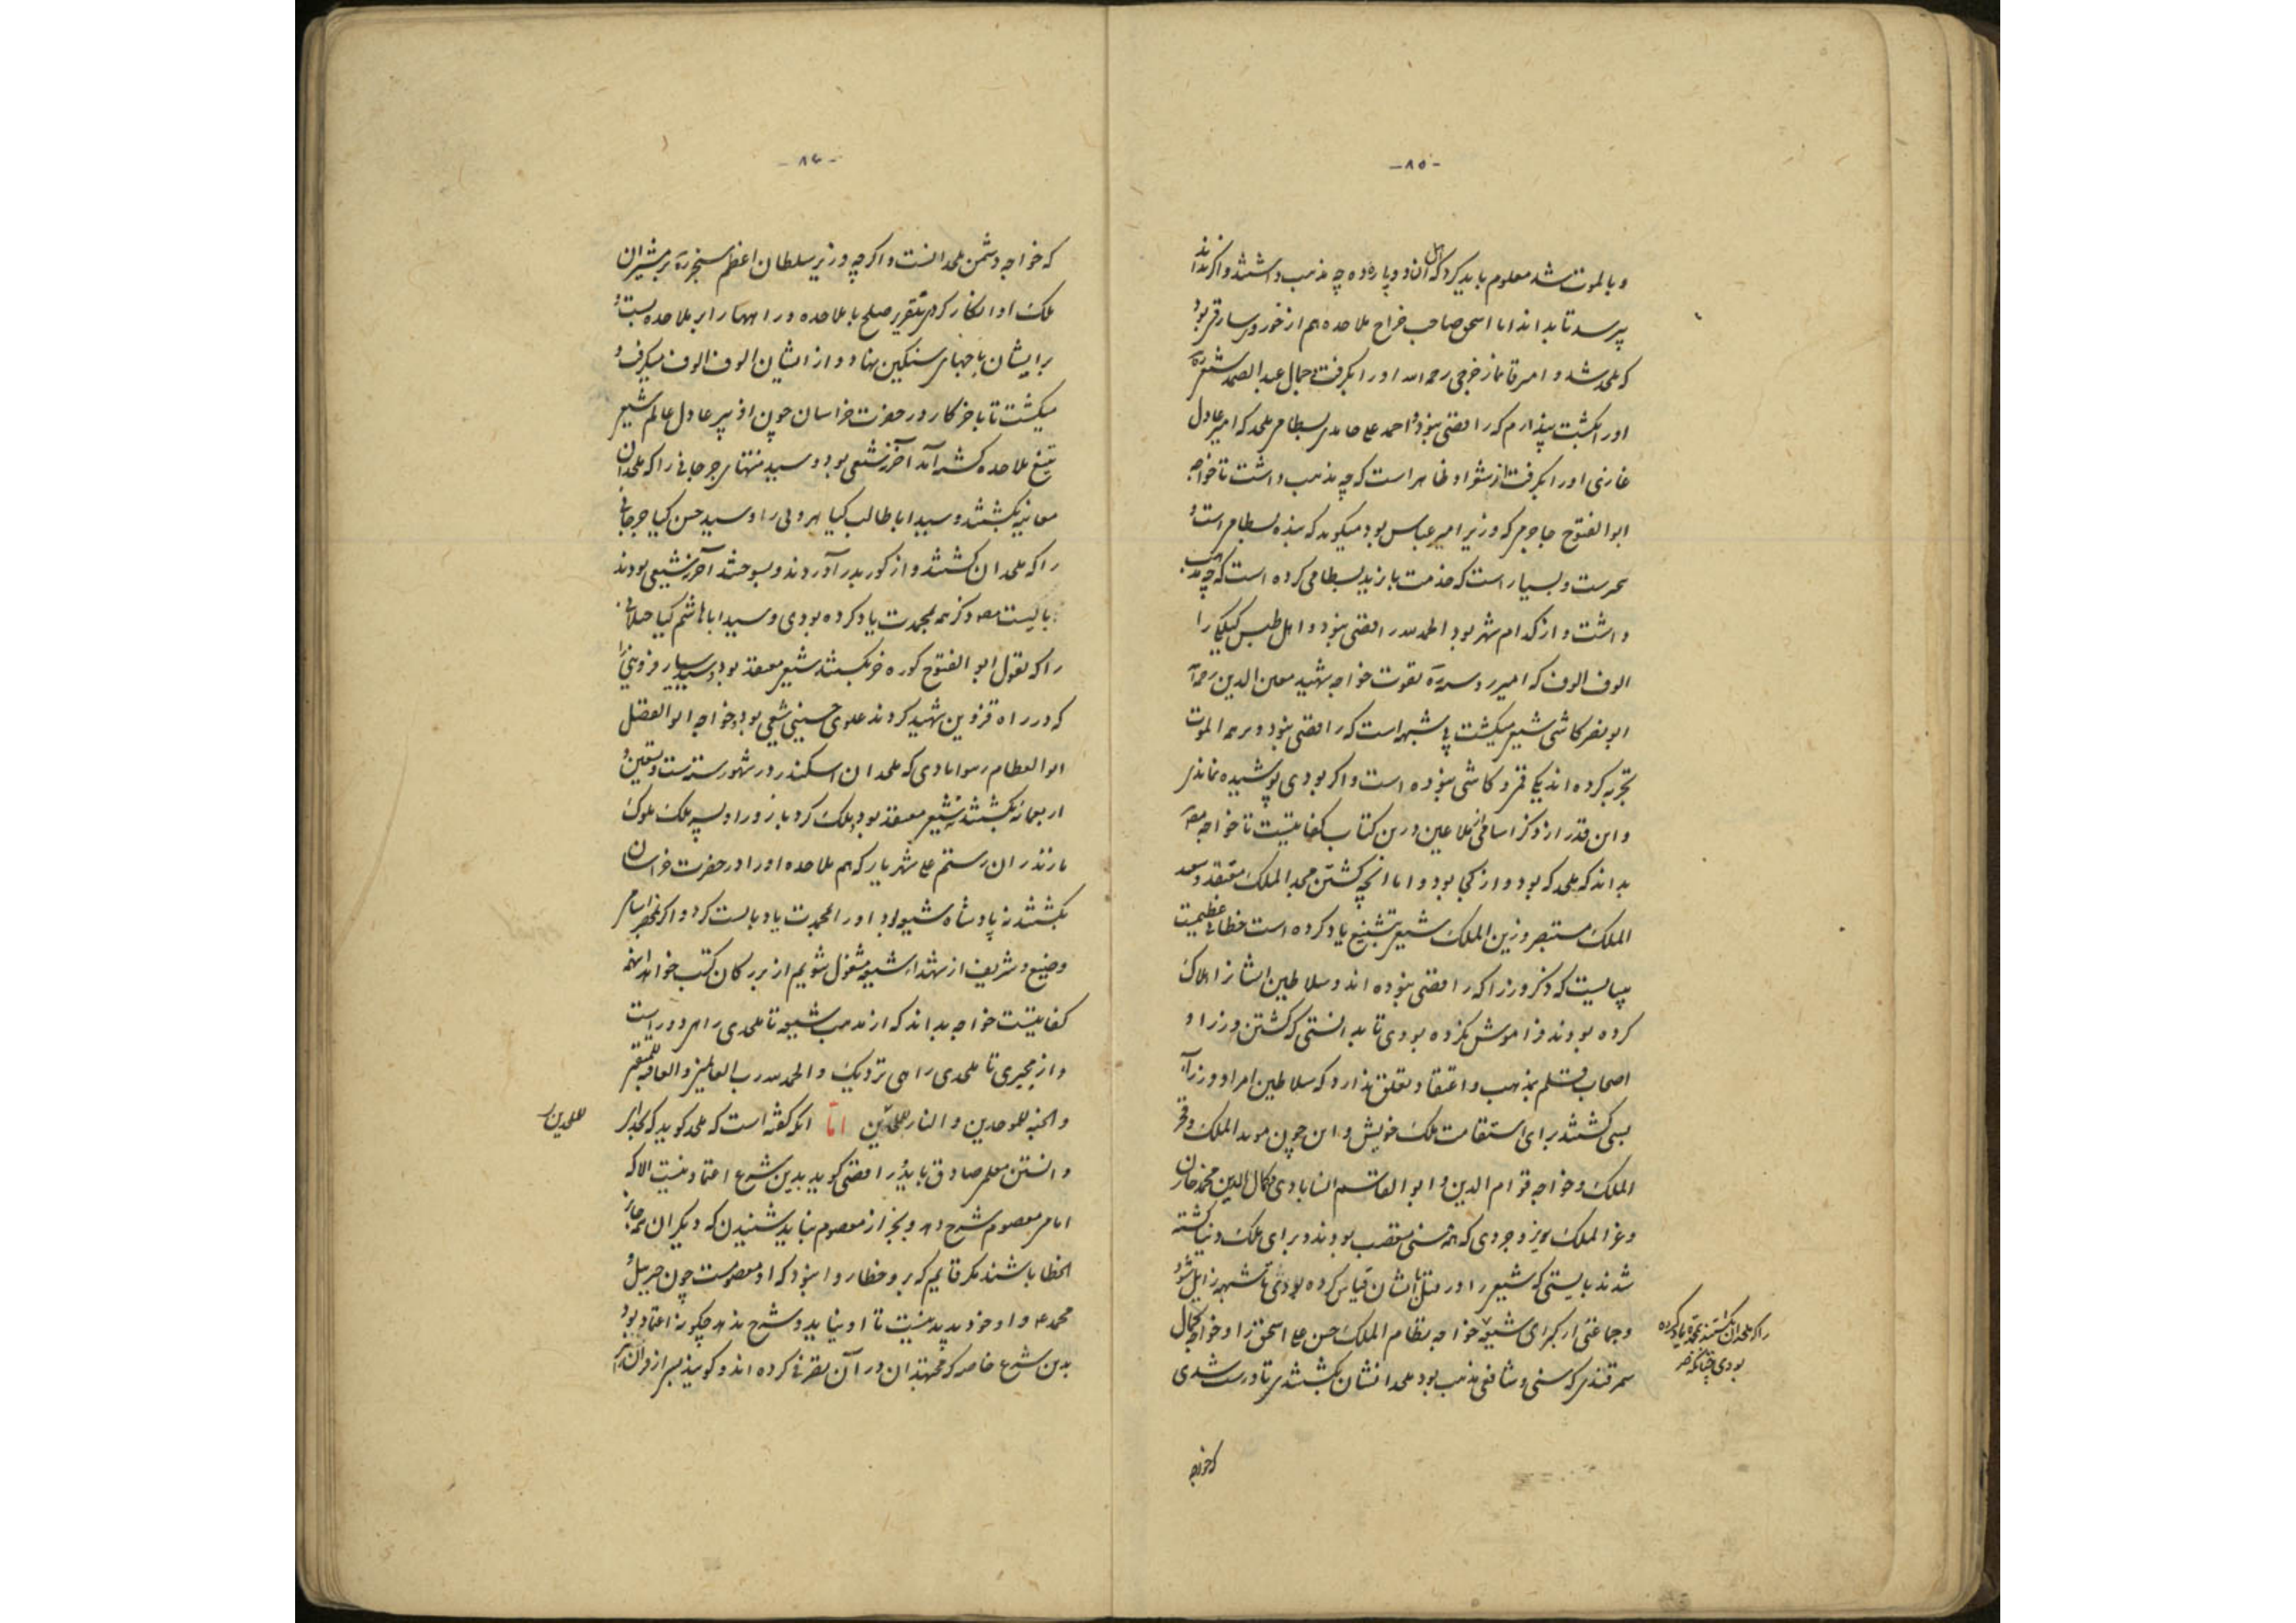 -۸۵-
و بالموت شد معلوم باید کرد که اهل آن دو پاره ده چه مذهب داشتند و اگر نداند
بپرسد تا بداند اما اسحق صاحب خراج ملاحده هم از خور و سارقر بود
که ملحد شد و امیر قایماز خرجی رحمه الله او را بگرفت و جمال عبد الصمد شیعی ره
او را بکشت پندارم که رافضی نبود و احمد علی حامدی بسطامی ملحد که امیر عادل
غازی او را بگرفت از شعر او ظاهر است که چه مذهب داشت تا خواجه
ابو الفتوح جاجرمی که وزیر امیر عباس بود میگوید که بنده بسطام است و
و بسیار است که خدمت بایزید بسطامی کرده است که چه مذهب
داشت و از کدام شهر بود الحمد لله رافضی نبود و اهل طبس گیلکی را
الوف الوف که امیر بقوت خواجه شهید معین الدین رحمه الله
ابو نصر کاشی شیعی میکشت بی شبهه است که رافضی نبود و بر همه الموت
تجربه کرده اند یکی قمی و کاشی نبوده است و اگر بودی پوشیده نماندی
و این قدر از ذکر اسامی ملاعین درین کتاب کفایتست تا خواجه مصنف
بداند که ملحد که بود و از کجا بود و اما آنچه کشتن مجد الملک معتقد و سعد
الملک مستبصر و زین الملک شیعی بتشنیع یاد کرده است خطائی عظیمست
میبایست که ذکر وزرا که رافضی نبوده اند و سلاطین ایشانرا هلاک
کرده بودند فراموش نکرده بودی تا بدانستی که کشتن وزرا و
اصحاب قلم بمذهب و اعتقاد تعلق ندارد که سلاطین امرا و وزرا
بسی کشتند برای استقامت ملک خویش و این چون موید الملک و فخر
الملک و خواجه قوام الدین و ابو القاسم انسابادی و کمال الدین محمد خازن
و عز الملک بروجردی که همه سنی متعصب بودند و برای ملک دنیا کشته
شدند بایستی که شیعی را در قتل بایشان قیاس کرده بودی تا شبهه زایل شود
و جماعتی از کبرای شیعه خواجه نظام الملک حسن علی اسحق را و خواجه کمال
سمرقندی که سنی و شافعی مذهب بود ملحدانشان بکشتندی تا درست شدی
را که ملحدان بکشتند بمحمدت یاد کرده
بودی چنانکه
که خواجه
-۸۶-
که خواجه دشمن ملحدانست و اگرچه وزیر سلطان اعظم سنجر ره بر مشیران
ملک او انکار کردی بتقریر صلح با ملاحده و راهها را بر ملاحده ببست و
بر ایشان باجهای سنگین نهاد و از ایشان الوف الوف میگرفت و
میکشت تا باخر کار در حضرت خراسان چون او پیر عادل عالم شیعی
بتیغ ملاحده کشته آمد آخر نه شیعی بود و سید منتهای جرجانی را که ملحدان
معاینه بکشتند و سید ابا طالب کیا هروی را و سید حسن کیا جرجانی
را که ملحدان کشتند و از گور بدر آوردند و بسوختند آخر نه شیعی بودند
بایست و ذکر همه بمحمدت یاد کرده بودی و سید ابا هاشم کیا جیلانی
را که بقول ابو الفتوح کوره خر بکشتند شیعی معتقد بود و سید قزوینی را
که در راه قزوین شهید کردند علوی حسینی شیعی بود و خواجه ابو الفضل
که ملحدان در شهور سنه ست و تسعین و
اربعمائه بکشتند نه شیعی معتقد بود و ملک گرد بازو را و پسر ملک ملوک
مازندران رستم علی شهریار که هم ملاحده او را در حضرت خراسان
بکشتند نه پادشاه شیعه بود او را بمحمدت یاد بایست کرد و اگر بحصر اسامی
وضیع و شریف از شهدای شیعه مشغول شویم از بزرگان کتب خواهد اینهمه
کفایتست خواجه بداند که از مذهب شیعه تا ملحدی راهی دور است
و از مجبری تا ملحدی راهی نزدیک و الحمد لله رب العالمین و العاقبة للمتقین
و الجنة للموحدین و النار للملحدین اما آنکه گفته است که ملحد گوید که خدای را
للملحدین
دانستن معلم صادق باید و رافضی گوید بدین شرع اعتماد نیست الا که
امام معصوم شرح دهد و بجز از معصوم نباید شنیدن که دیگران همه جایز
الخطا باشند مگر قایم که برو خطا روا نبود که او معصومست چون جبریل و
محمد و او خود پدید نیست تا او نیاید و شرح ندهد چگونه اعتماد بود
بدین شرع خاصه که مجتهدان در آن تصرفی کرده اند و گویند پس از قرآن